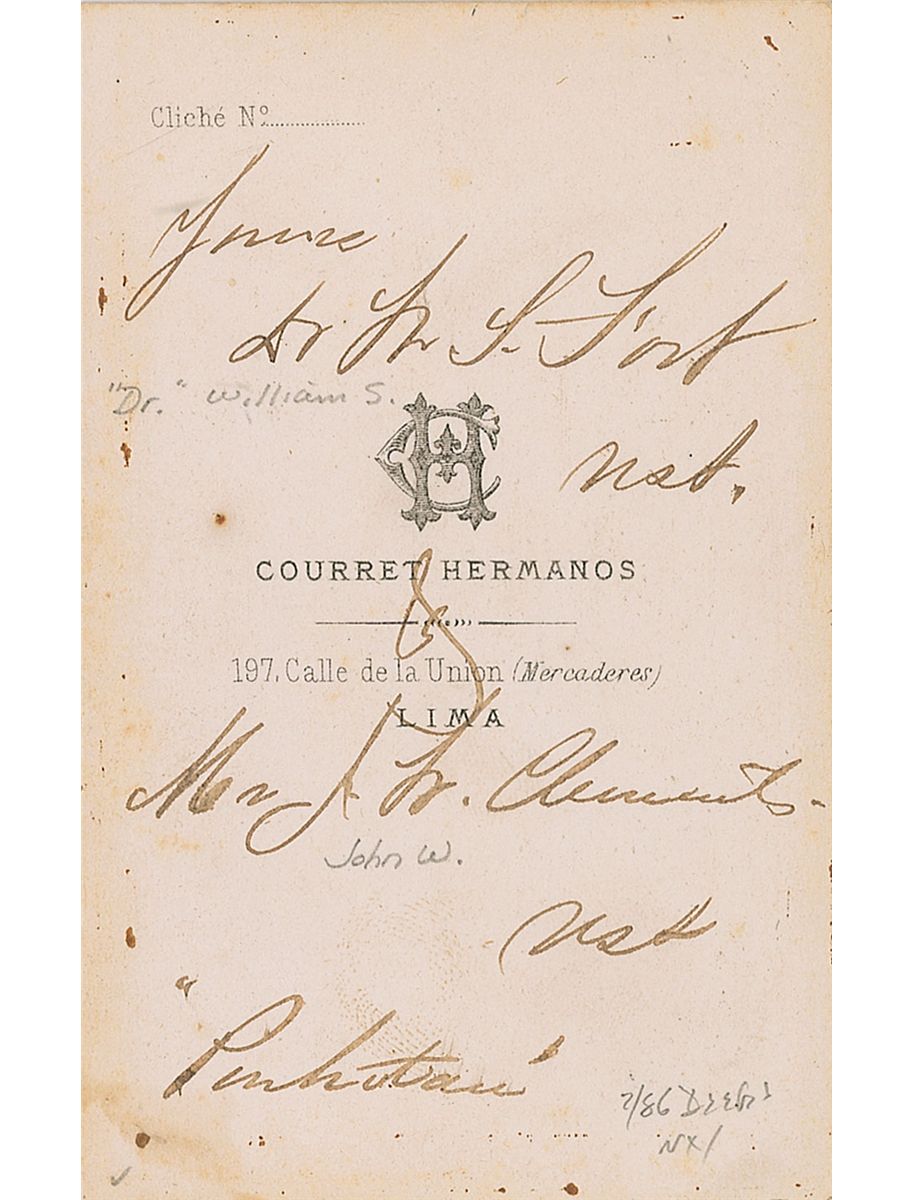 Cliché Nº
Yours
Dr. W. S. Fort
"Dr." William S.
CH
USA.
COURRET HERMANOS
&
197, Calle de la Union (Mercaderes)
LIMA
Mr J. W. Clements.
John W.
USA
2/86
NX/